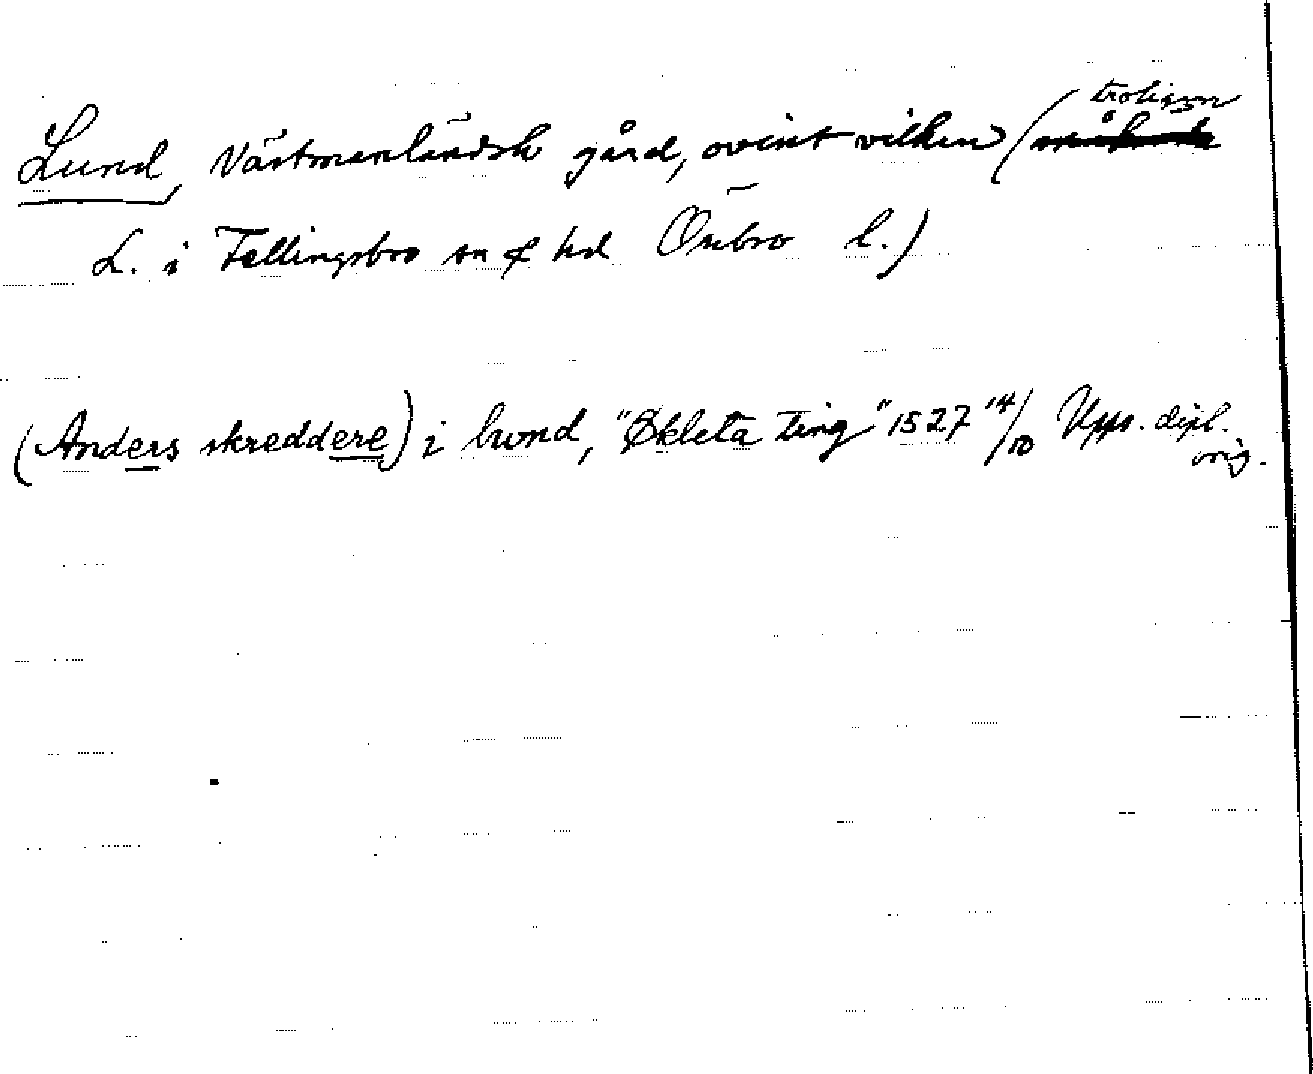 Lund, Västmanländsk gård, ovisst vilken (troligen
L. i Fellingsbro sn & hd Örebro l.)
(Anders skreddere) i lwnd, "Økleta ting" 1527 14/10 Upps. dipl.
orig.